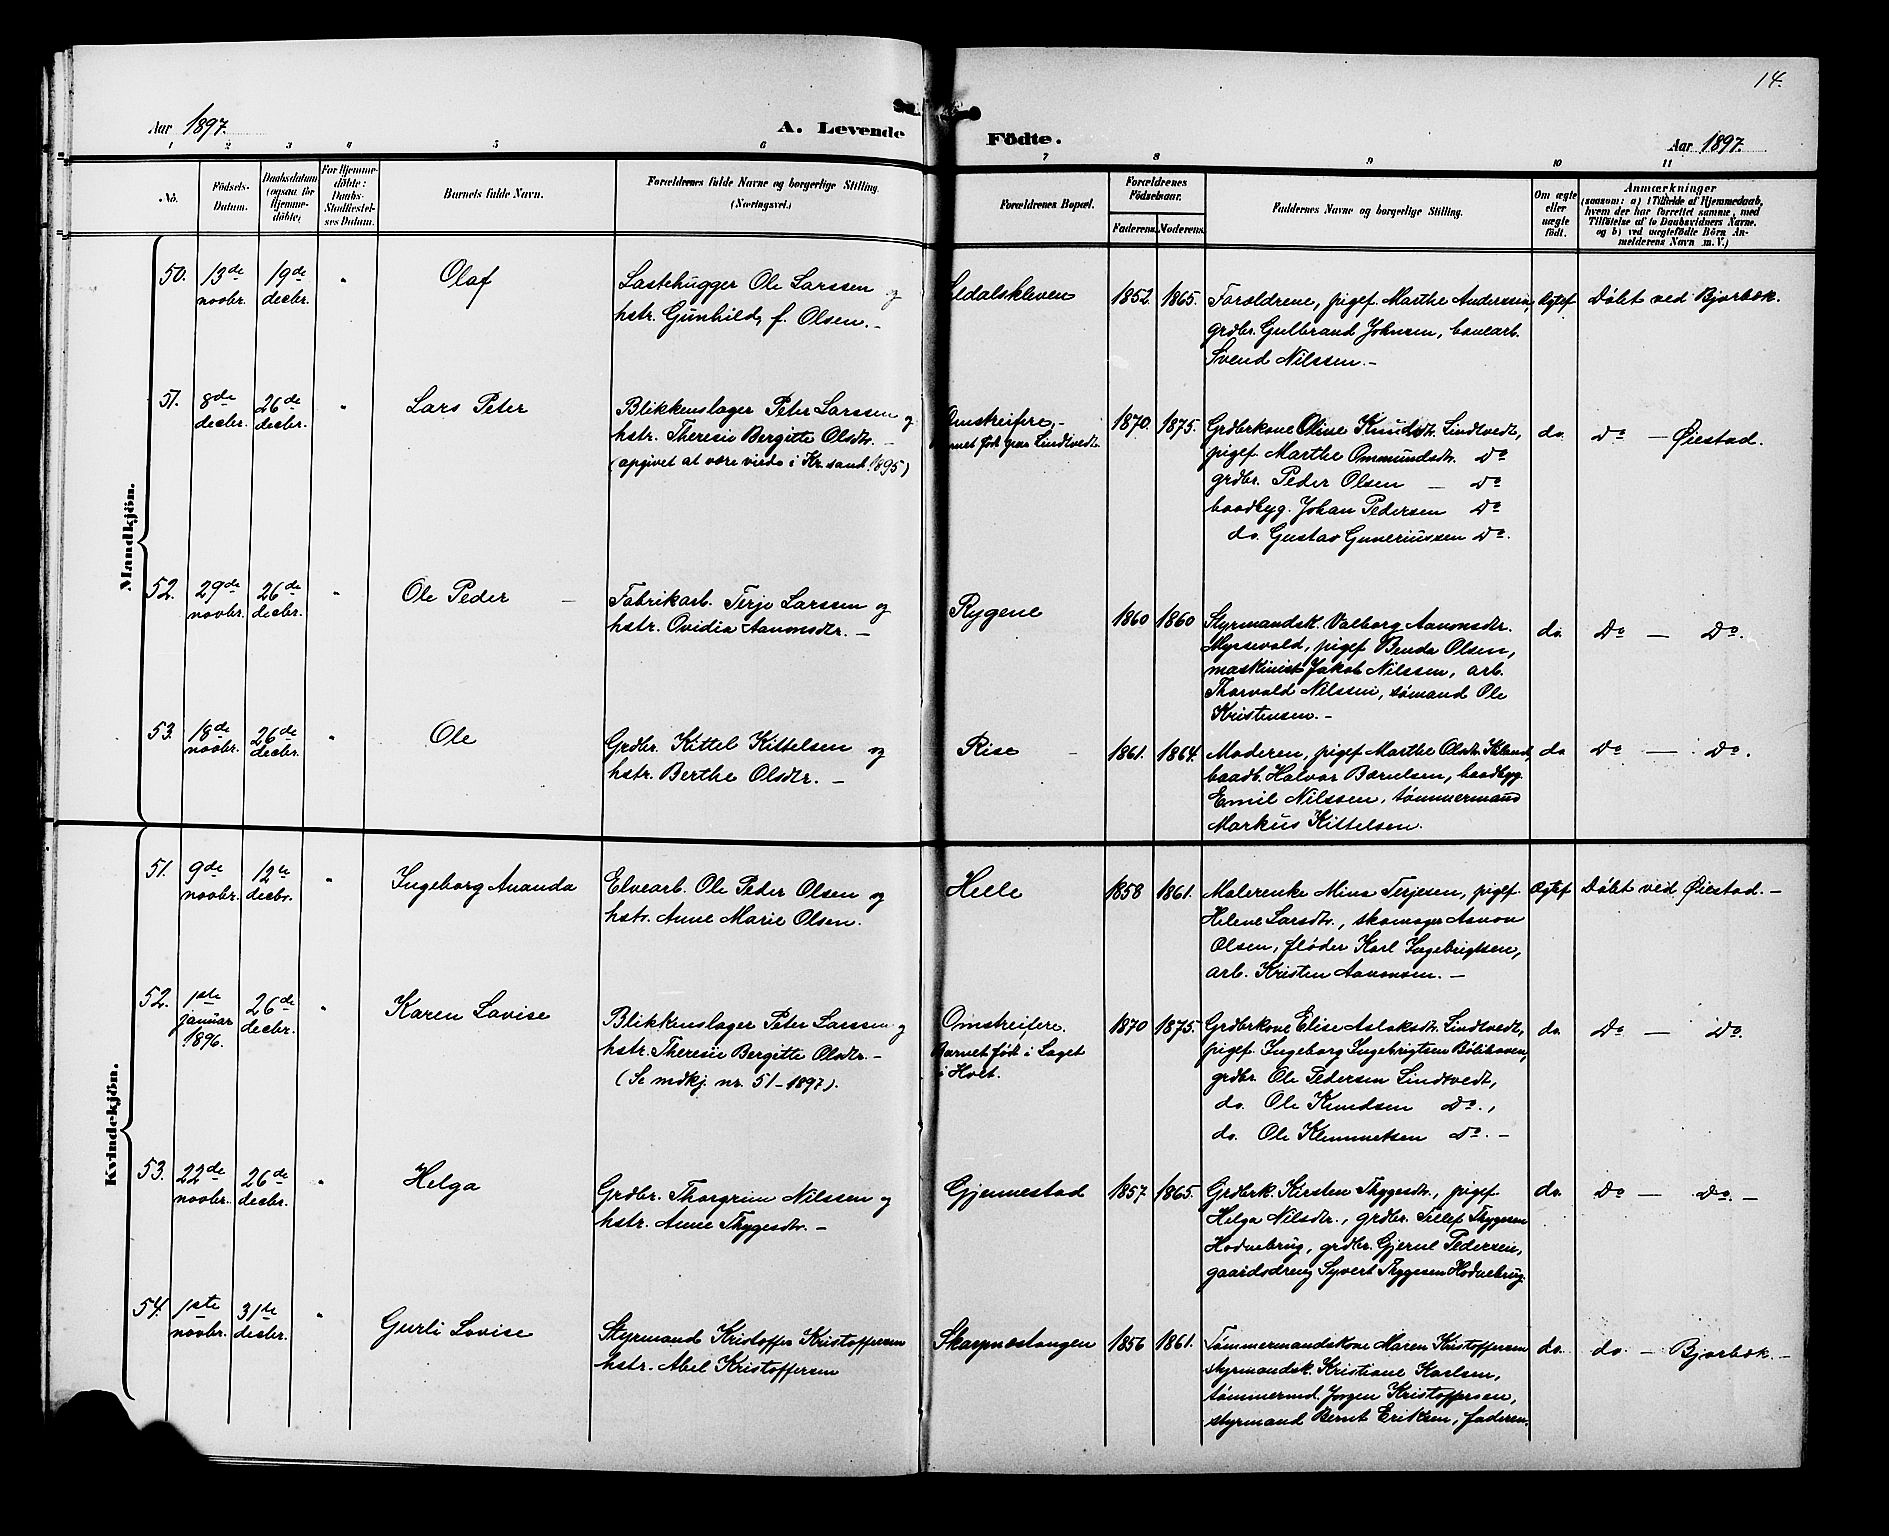 14.
Aar 1897.
A. Levende
Födte.
Aar 1897.
1 2 3 4 5 6 7 8 9 10 11
No.
Födsels-
Datum.
Daabsdatum
(ogsaa for
Hjemme-
döbte)
For Hjemme-
döbte:
Daabs-
Stadfæstel-
ses Datum.
Barnets fulde Navn.
Forældrenes fulde Navne og borgerlige Stilling.
(Næringsvei.)
Forældrenes Bopæl.
Forældrenes
Födselsaar.
Faderens. Moderens.
Faddernes Navne og borgerlige Stilling.
Om ægte
eller
uægte
födt.
Anmærkninger
(saasom: a) i Tilfælde af Hjemmedaab,
hvem der har forrettet samme, med
Tilföielse af to Daabsvidners Navne.
og b) ved uægtefödte Börn An-
melderens Navn m. V.)
Mandkjön.
50. 13de novbr. 19de decbr. " Olaf
Lastehugger Ole Larssen og
hstr. Gunhild, f. Olsen. –
Sedalskleven 1852. 1865.
Forældrene, pigef. Marthe Anderssen,
grdbr. Gulbrand Johnsen, banearb.
Svend Nilssen. –
Ægtef. Døbt ved Bjorbæk.
51. 8de decbr. 26de decbr. " Lars Peter
Blikkenslager Peter Larssen og
hstr. Theresie Bergitte Olsdtr. –
(opgivet at være viede i Kr.sand. 1895)
Omstreifere, –
født paa Lindtvedt. 1870. 1875.
Grdbrkone Oline Knudsdtr. Lindtvedt,
pigef. Marthe Ommundsdtr. Do
grdbr. Peder Olsen – Do
baadbyg. Johan Pedersen Do
do. Gustav Guneriussen Do.
do. Do – Øiestad.
52. 29de novbr. 26de decbr. " Ole Peder –
Fabrikarb. Terje Larssen og
hstr. Ovidia Aanonsdtr. –
Rygene 1860 1860
Styrmandsk. Valborg Aanonsdtr.
Myrsvold, pigef. Benda Olsen,
maskinist Jakob Nilssen, arb.
Thorvald Nilssen, sømand Ole
Kristensen. –
do. Do – Do.
53. 18de novbr. 26de decbr. " Ole
Grdbr. Kittel Kittelsen og
hstr. Berthe Olsdtr. –
Rise – 1861. 1864.
Moderen, pigef. Marthe Olsdtr.
baadb. Halvor Bærulsen, baadbyg.
Emil Nilssen, tømmermand
Markus Kittelsen.
do Do – Do.
Kvindekjön.
51. 9de novbr. 12te decbr. " Ingeborg Ananda
Elvearb. Ole Peder Olsen og
hstr. Anne Marie Olsen.
Helle 1858 1861.
Malerenke Mina Terjesen, pigef.
Helene Larsdtr., skomager Aanon
Olsen, fløder Karl Ingebrigtsen,
arb. Kristen Aanonsen. –
Ægtef. Døbt ved Øiestad. –
52. 1ste januar 1896. 26de decbr. " Karen Lovise
Blikkenslager Peter Larssen og
hstr. Theresie Bergitte Olsdtr. –
(Se mdkj. nr. 51 – 1897).
Omstreifere.
Barnet født i Laget
i Holt. 1870 1875.
Grdbrkone Elise Aslaksdtr. Lindtvedt,
pigef. Ingeborg Ingebrigtsen
grdbr. Ole Pedersen Lindtvedt,
do. Ole Knudsen Do.,
do. Ole Klemmetsen Do. –
do. Do – Do.
53. 22de novbr. 26de decbr. " Helga
Grdbr. Thorgrim Nilssen og
hstr. Anne Thygesdtr. –
Gjennestad 1857. 1865.
Grdbrk. Kirsten Thygesdtr., pigef.
Helga Nilsdtr., grdbr. Tellef Thygesen
Hodnebrug, grdbr. Gjerul Pedersen,
gaardsdreng Syvert Thygesen Hodnebrug.
do. Do – Do. –
54. 1ste novbr. 31te decbr. " Gurli Lovise
Styrmand Kristoffer Kristoffersen
hstr. Abel Kristoffersen
Skarpnestangen 1856 1861.
Tømmermandskone Maren Kristoffersen
styrmandsk. Kristiane Karlsen,
tømmermd. Jørgen Kristoffersen,
styrmand Bernt Eriksen, faderen.
do. do. – Bjorbæk. –